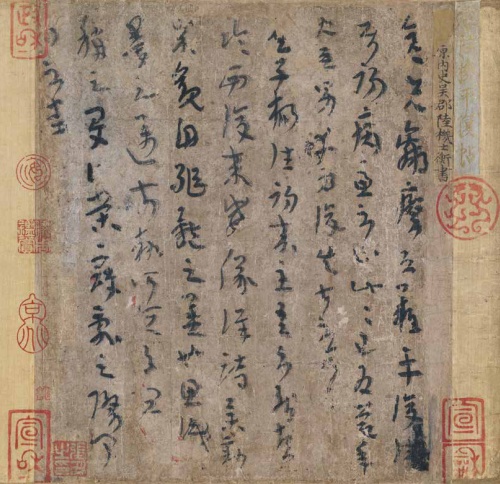 晉內史吳郡陸機士衡書
彥先羸瘵恐難平復往屬
初病慮不止此此已為慶承
使唯男幸為復失前憂耳
吳子楊往初來主吾不能盡
臨西復來威儀詳跱舉動
成觀自軀體之美也思識
量之邁前勢所恒有宜
稱之夏伯榮寇亂之際聞
問不悉
政和
宣和
宣和